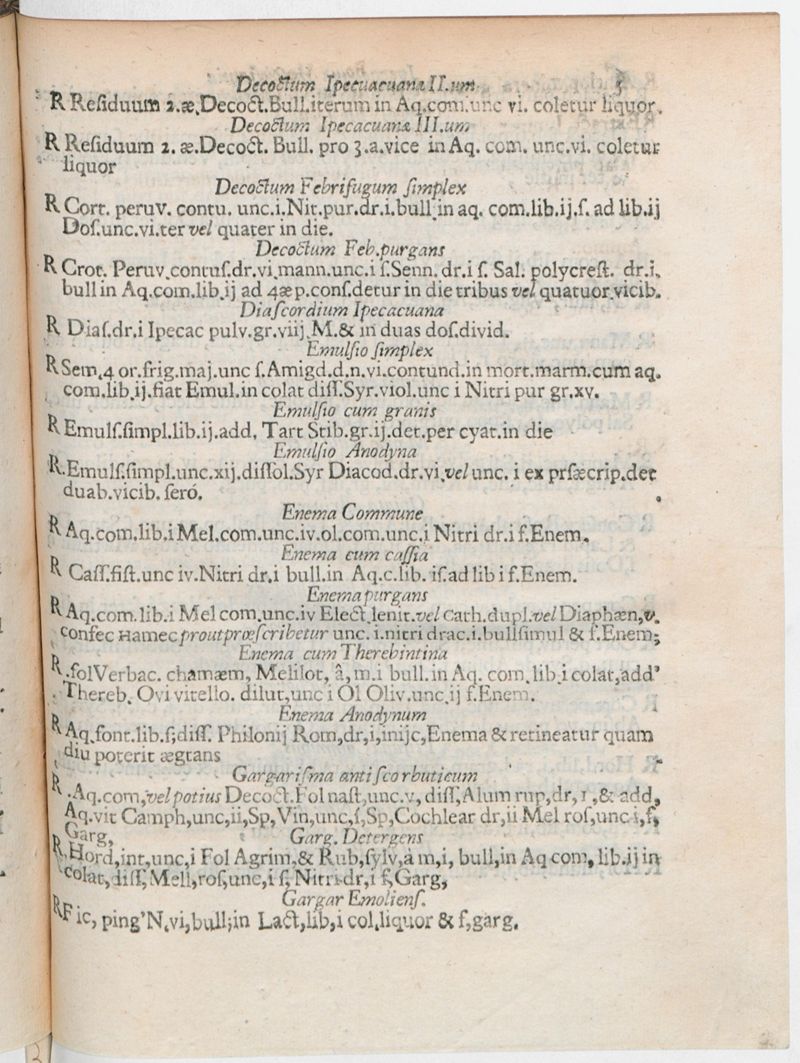 Decoctum Ipecuacuanæ II.um 3
R Reſiduum 2.æ.Decoct.Bull.iterum in Aq.com.unc vi. coletur liquor.
Decoctum Ipecacuanæ III.um
R Reſiduum 2. æ.Decoct. Bull. pro 3.a.vice in Aq. com. unc.vi. coletur
liquor
Decoctum Febrifugum ſimplex
R Cort. peruv. contu. unc.i.Nit.pur.dr.i.bull in aq. com.lib.ij.ſ. ad lib.ij
Doſ.unc.vi.ter vel quater in die.
Decoctum Feb.purgans
R Crot. Peruv.contuſ.dr.vi.mann.unc.i ſ.Senn. dr.i ſ. Sal. polycreſt. dr.i.
bull in Aq.com.lib.ij ad 4æ p.conſ.detur in die tribus vel quatuor.vicib.
Diaſcordium Ipecacuana
R Diaſ.dr.i Ipecac pulv.gr.viij.M.& in duas doſ.divid.
Emulſio ſimplex
R Sem.4 or.frig.maj.unc ſ.Amigd.d.n.vi.contund.in mort.marm.cum aq.
com.lib.ij.fiat Emul.in colat diſſ.Syr.viol.unc i Nitri pur gr.xv.
Emulſio cum granis
R Emulſ.ſimpl.lib.ij.add, Tart Stib.gr.ij.det.per cyat.in die
Emulſio Anodyna
R.Emulſ.ſimpl.unc.xij.diſſol.Syr Diacod.dr.vi.vel unc. i ex prſæcrip.det
duab.vicib. ſerò.
Enema Commune
R Aq.com.lib.i Mel.com.unc.iv.ol.com.unc.i Nitri dr.i f.Enem.
Enema cum caſſia
R Caſſ.fiſt.unc iv.Nitri dr.i bull.in Aq.c.lib. iſ.ad lib i f.Enem.
Enema purgans
R Aq.com.lib.i Mel com.unc.iv Elect lenit.vel Cath.dupl.vel Diaphæn,v.
confec Hamec prout præſcribetur unc. i.nitri drac.i.bullſimul & f.Enem;
Enema cum Therebintina
R.folVerbac. chamæm, Melilot, â, m.i bull.in Aq. com.lib.i colat,add'
Thereb. Ovi vitello. dilut,unc i Ol Oliv.unc.ij f.Enem.
Enema Anodynum
R Aq.font.lib.ſ;diſſ. Philonij Rom,dr,i,inijc,Enema & retineatur quam
diu poterit ægtans
Gargariſma antiſcorbuticum
R .Aq.com,vel potius Decoct.Fol naſt,unc.v, diſſ,Alum rup,dr,1,& add,
Aq.vit Camph,unc,ii,Sp,Vin,unc,ſ,Sp,Cochlear dr,ii Mel roſ,unc i,ſ,
Garg,
Garg. Detergens
R.Hord,int,unc,i Fol Agrim,& Rub,ſylv,à m,i, bull,in Aq com, lib.ij in
colat,diſſ, Mell,roſ,unc,i ſ, Nitri dr,i f,Garg,
Gargar Emolienſ.
R Fic, ping'N.vi,bull;in Lact,lib,i col.liquor & f,garg.